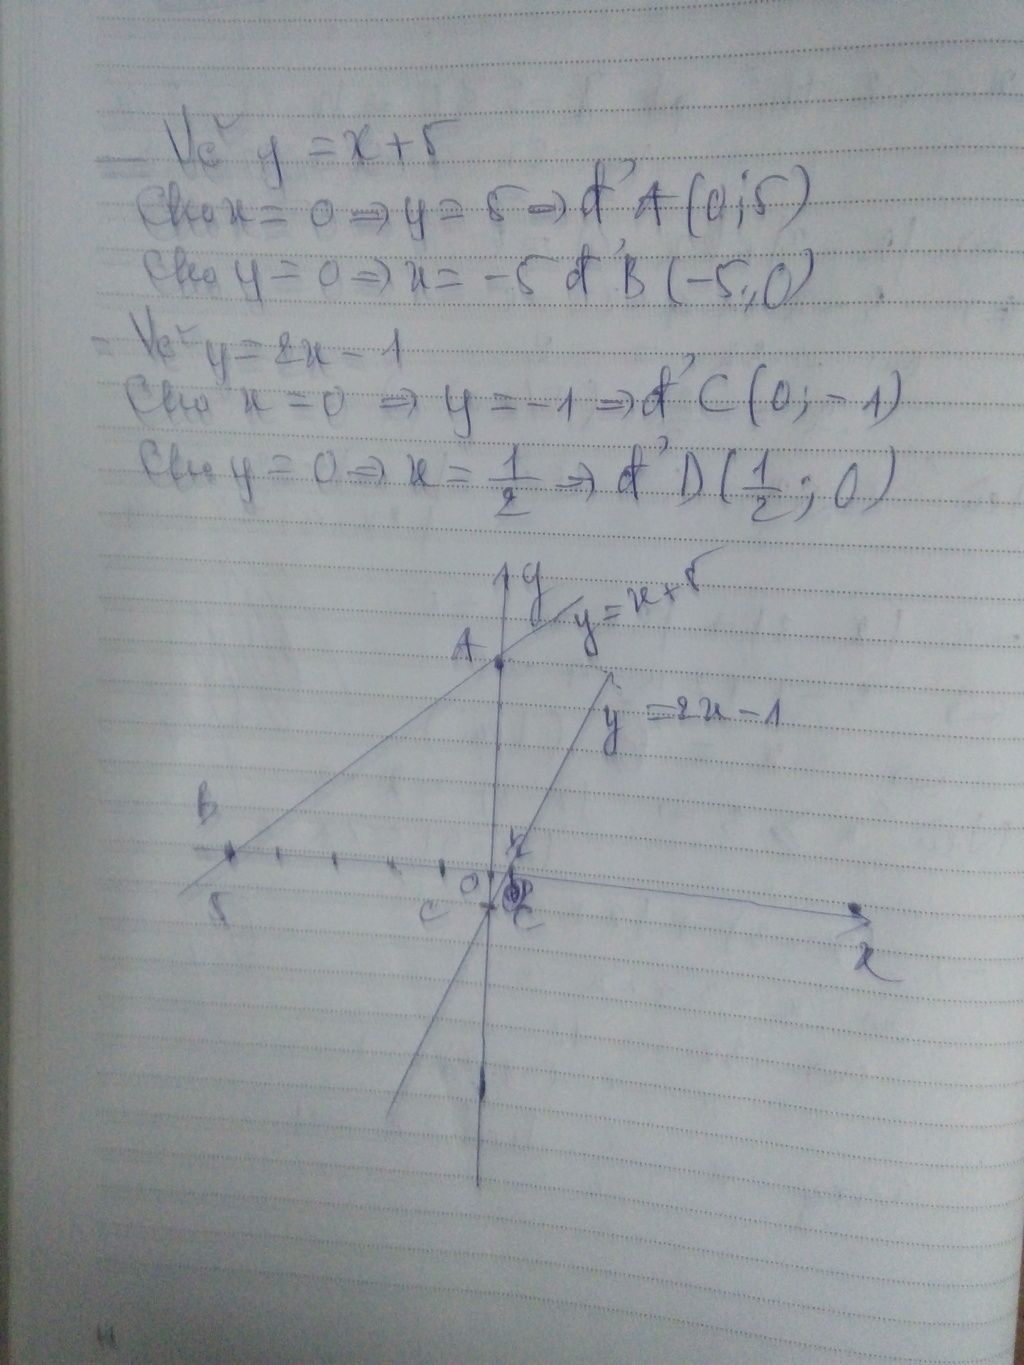 Vẽ y = x + 5
Cho x = 0 => y = 5 => đ' A (0; 5)
Cho y = 0 => x = -5 đ' B (-5; 0)
= Vẽ y = 2x - 1
Cho x = 0 => y = -1 => đ' C (0; -1)
Cho y = 0 => x = 1/2 => đ' D (1/2; 0)
y
y = x + 5
A
y = 2x - 1
B
O
5
C
C
x